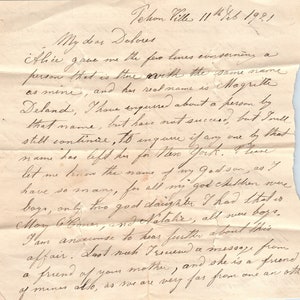 11th Feb 1921
My dear Dolores
Alice gave me the few lines concerning a
person that is there with the same name
as mine, and her real name is
Deland, I have enquired about a person by
that name, but have not succeed, but I will
still continue, to inquire if any one by that
name has left here for New York. Please
let me know the name of my god son, as I
have so many, for all my god children were
boys, only two god daughter I had that is
Mary and all were boys.
I am anxiouse to hear further about this
affair. Last week I received a message from
a friend of your mother, and she is a friend
of mines also, as we are very far from one an other